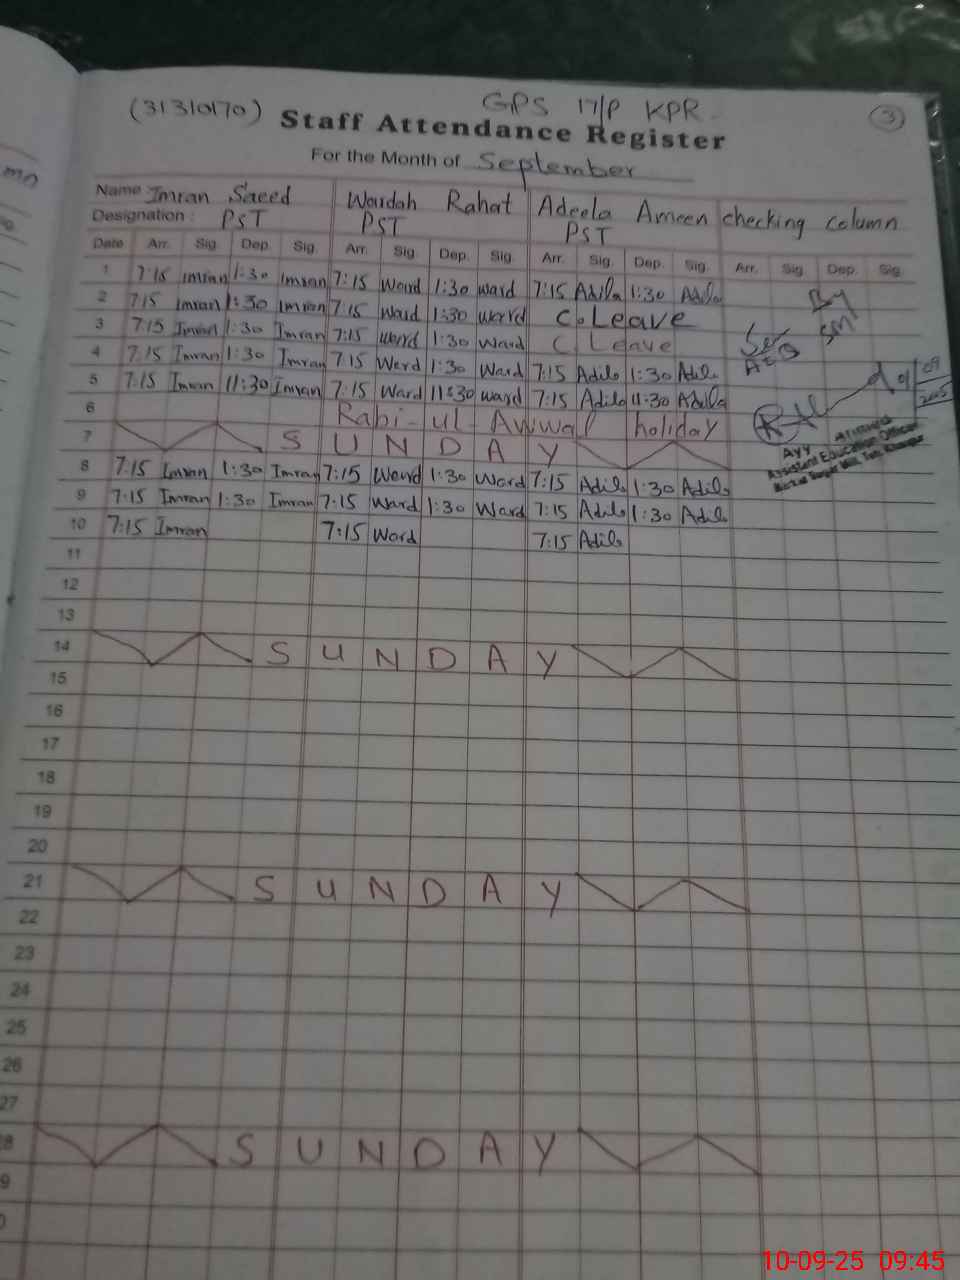 GPS 17/P KPR
(31310170) Staff Attendance Register 3
For the Month of September
Name Imran Saeed Wardah Rahat Adeela Ameen checking column
Designation : PST PST PST
Date Arr. Sig. Dep. Sig. Arr. Sig. Dep. Sig. Arr. Sig. Dep. Sig. Arr. Sig Dep. Sig
1 7:15 Imran 1:30 Imran 7:15 Ward 1:30 Ward 7:15 Adila 1:30 Adila
2 7:15 Imran 1:30 Imran 7:15 Ward 1:30 Ward C.Leave
3 7:15 Imran 1:30 Imran 7:15 Ward 1:30 Ward C Leave
4 7:15 Imran 1:30 Imran 7:15 Ward 1:30 Ward 7:15 Adila 1:30 Adila
5 7:15 Imran 11:30 Imran 7:15 Ward 11:30 Ward 7:15 Adila 11:30 Adila
6 Rabi-ul-Awwal holiday
7 SUNDAY
Assistant Education Officer
8 7:15 Imran 1:30 Imran 7:15 Ward 1:30 Ward 7:15 Adila 1:30 Adila
9 7:15 Imran 1:30 Imran 7:15 Ward 1:30 Ward 7:15 Adila 1:30 Adila
10 7:15 Imran 7:15 Ward 7:15 Adila
11
12
13
14 SUNDAY
15
16
17
18
19
20
21 SUNDAY
22
23
24
25
26
27
8 SUNDAY
9
10-09-25 09:45